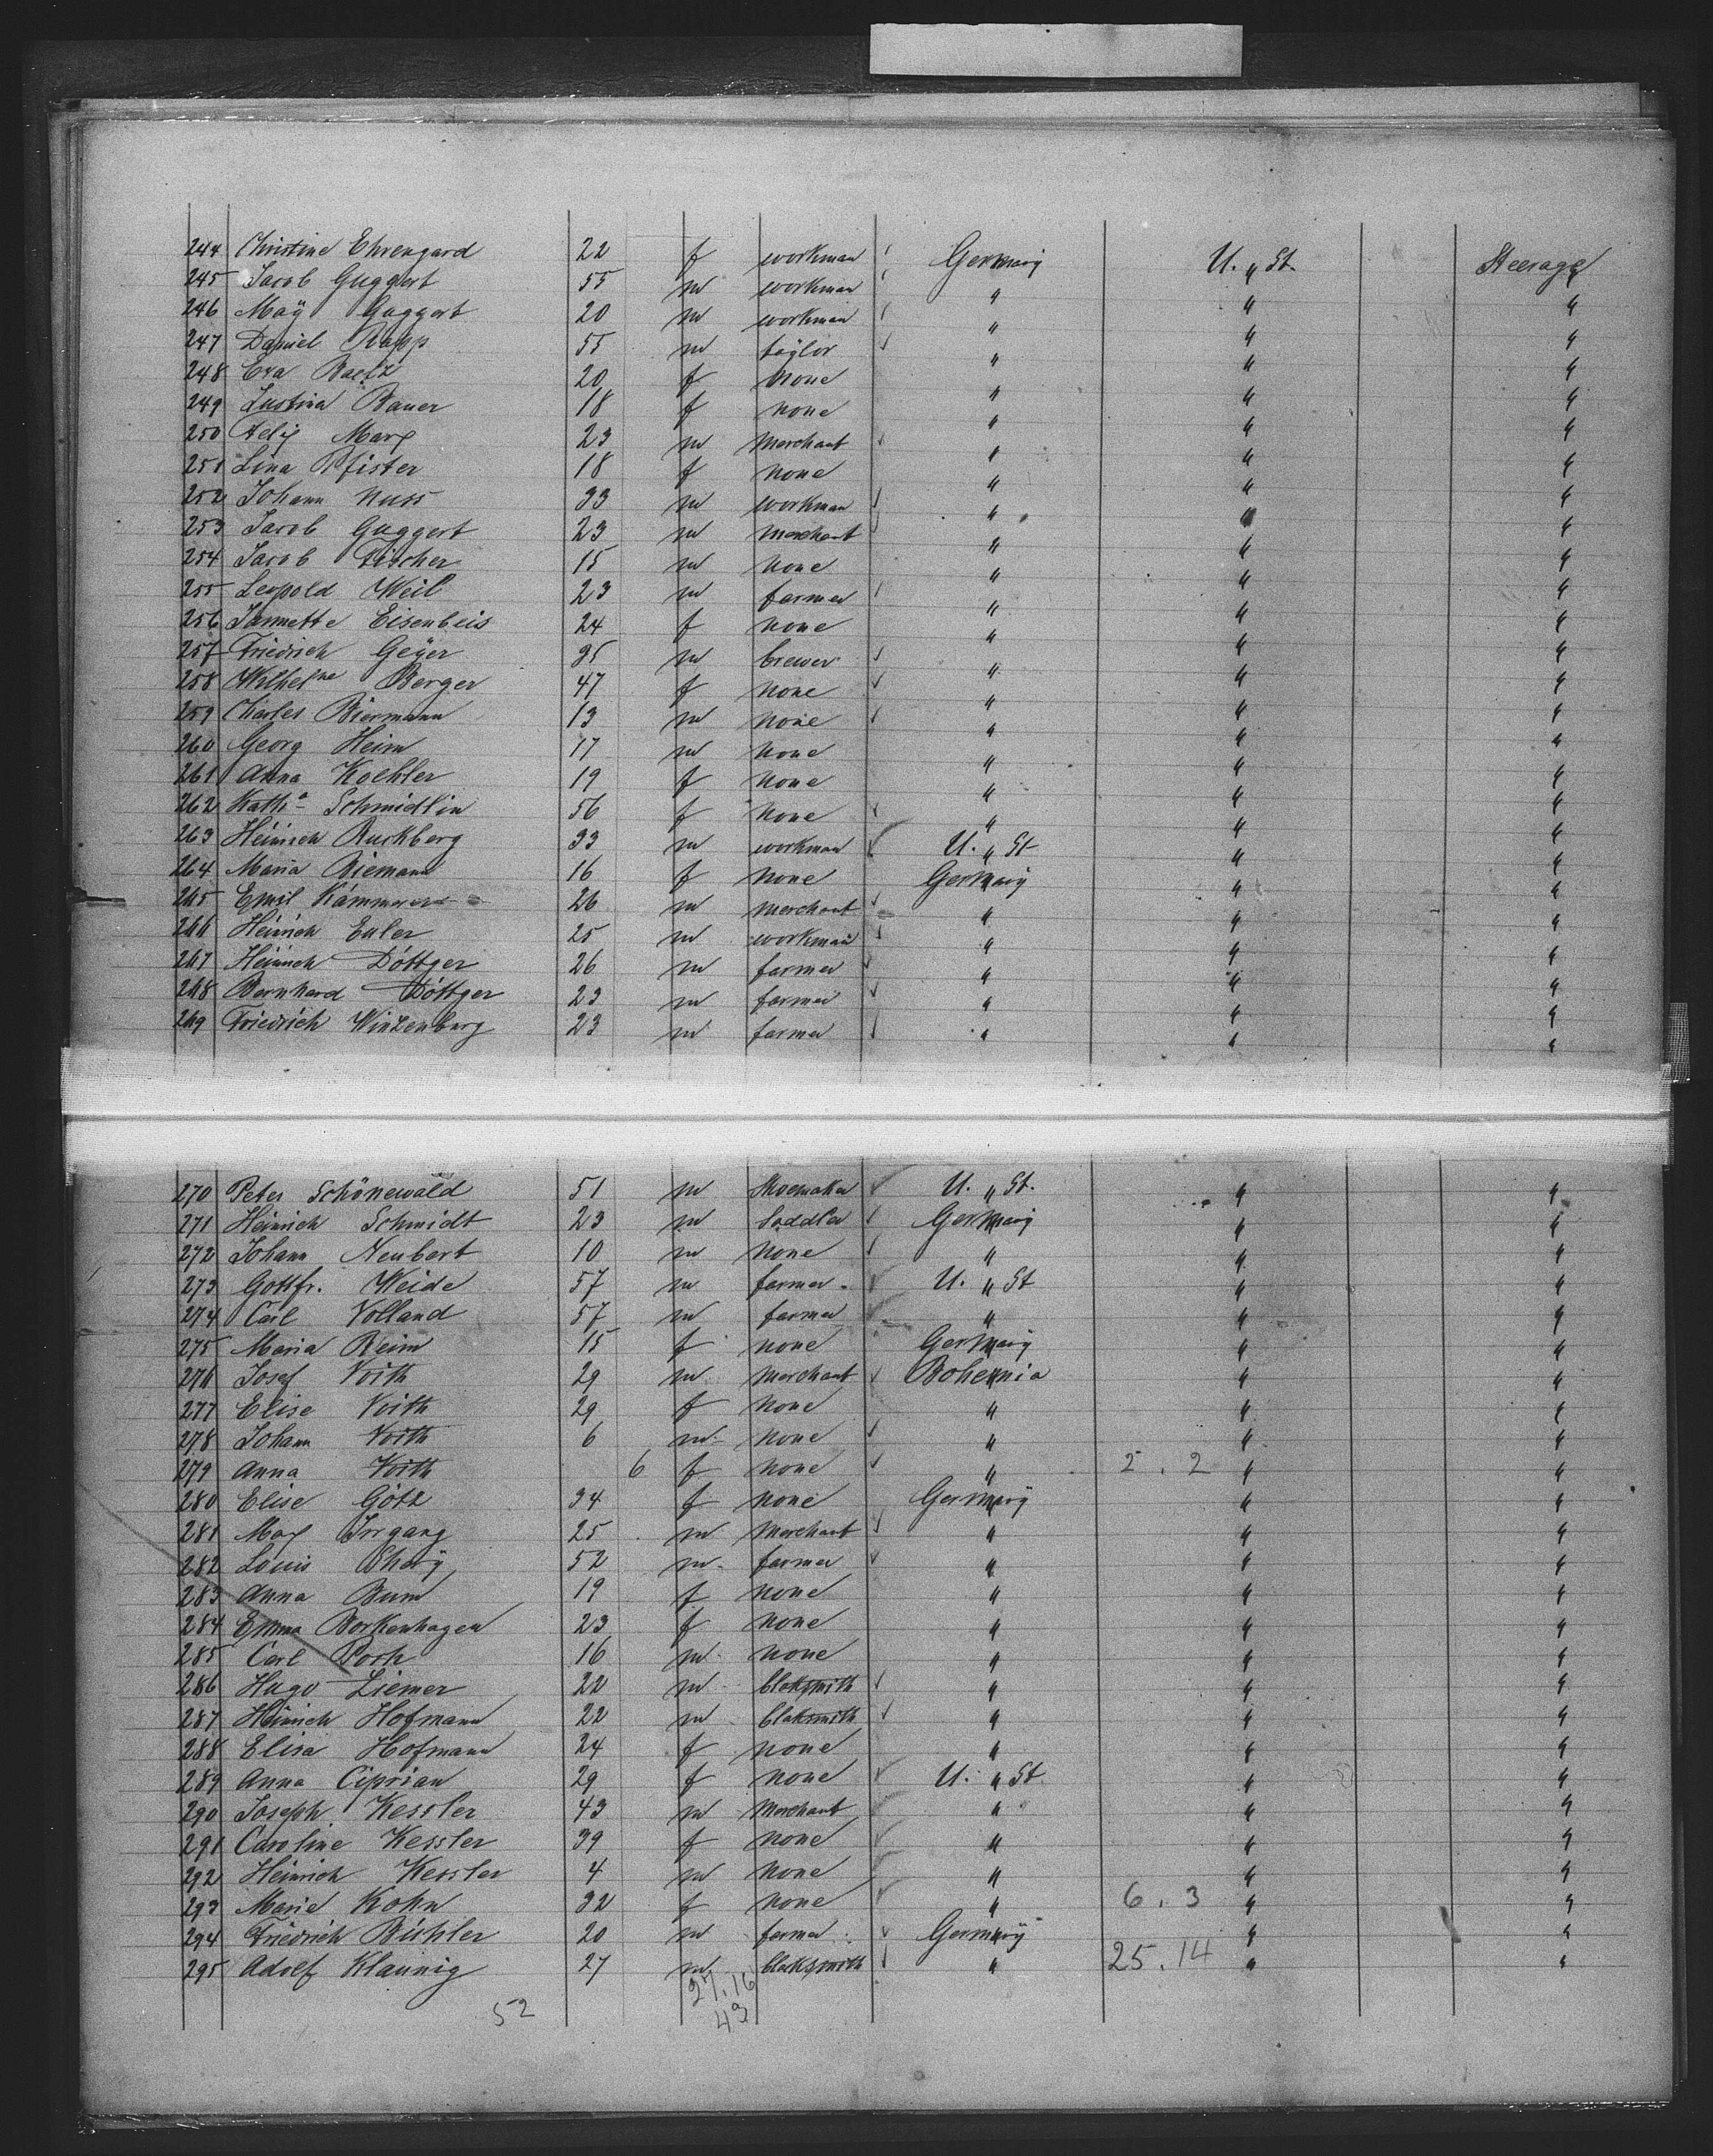 244 Christine Ehrengard 22 f workman Germany U. St. Steerage
245 Jacob Guggert 55 m workman " " "
246 May Guggert 20 m workman " " "
247 Daniel Rapp 55 m taylor " " "
248 Eva Baetz 20 f none " " "
249 Justina Bauer 18 f none " " "
250 Felix Marx 23 m merchant " " "
251 Lina Pfister 18 f none " " "
252 Johann Nuss 33 m workman " " "
253 Jacob Guggert 23 m merchant " " "
254 Jacob Fischer 15 m none " " "
255 Leopold Weil 23 m farmer " " "
256 Jannette Eisenbeis 24 f none " " "
257 Friedrich Geÿer 35 m brewer " " "
258 Wilhelne Berger 47 f none " " "
259 Charles Biermann 13 m none " " "
260 Georg Heim 17 m none " " "
261 Anna Koehler 19 f none " " "
262 Katha Schmidlin 56 f none " " "
263 Heinrich Ruckberg 33 m workman U. St " "
264 Maria Biemann 16 f none Germany " "
265 Emil Kämmerer 26 m merchant " " "
266 Heinrich Euler 25 m workman " " "
267 Heinrich Döttger 26 m farmer " " "
268 Bernhard Döttger 23 m farmer " " "
269 Friedrich Winzenburg 23 m farmer " " "
270 Peter Schönewald 51 m Shoemaker U. St. " "
271 Heinrich Schmidt 23 m Saddler Germany " "
272 Johann Neubert 10 m none " " "
273 Gottfr. Weide 57 m farmer U. St " "
274 Carl Volland 57 m farmer " " "
275 Maria Reim 15 f none Germany " "
276 Josef Voith 29 m merchant Bohemia " "
277 Elise Voith 29 f none " " "
278 Johann Voith 6 m none " " "
279 Anna Voith 6 f none " 5 . 2 " "
280 Elise Götz 34 f none Germany " "
281 Max Irrgang 25 m merchant " " "
282 Louis 52 m farmer " " "
283 Anna Bum 19 f none " " "
284 Emma Borkenhagen 23 f none " " "
285 Carl Posh 16 m none " " "
286 Hugo Liemer 22 m blaksmith " " "
287 Heinrich Hofmann 22 m blaksmith " " "
288 Elisa Hofmann 24 f none " " "
289 Anna Ciprian 29 f none U. St " "
290 Joseph Kessler 43 m merchant " " "
291 Caroline Kessler 39 f none " " "
292 Heinrich Kessler 4 m none " " "
293 Marie Kohn 32 f none " 6 . 3 " "
294 Friedrich Bühler 20 m farmer Germany " "
295 Adolf Klaunig 27 m blacksmith " 25 . 14 " "
27 . 16
52 43